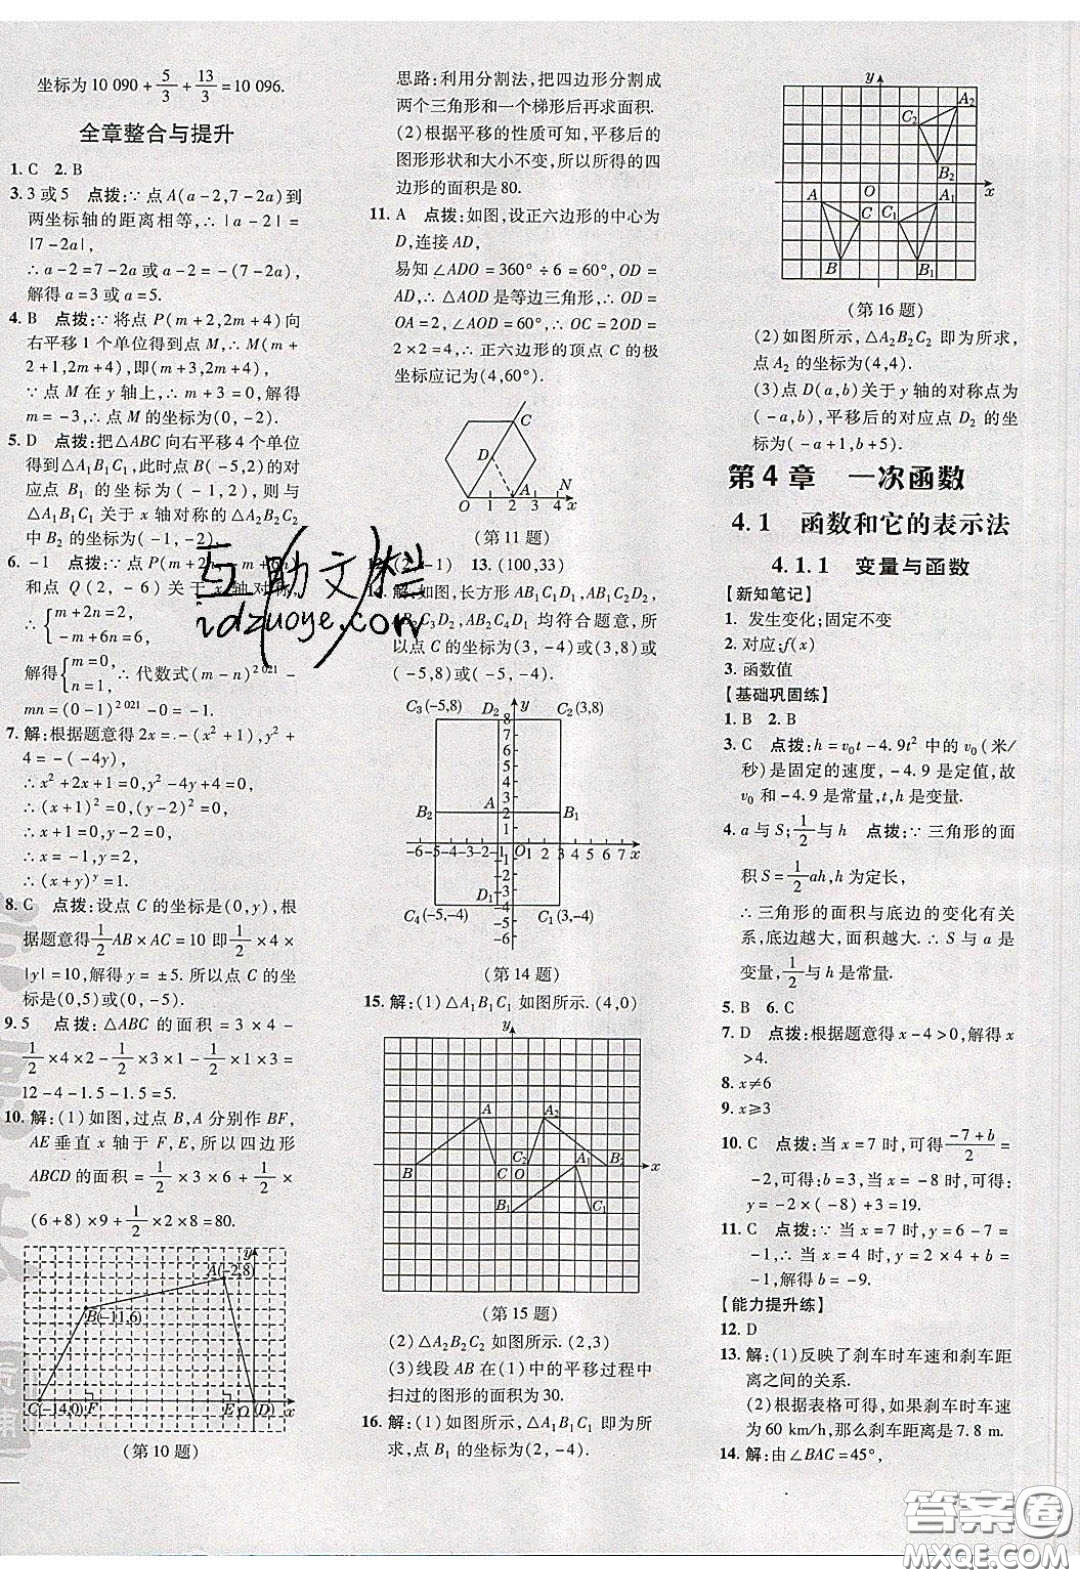 坐标为 10 090 + 5/3 + 13/3 = 10 096.
全章整合与提升
1. C  2. B
3. 3 或 5  点拨:∵ 点 A(a-2,7-2a)到
两坐标轴的距离相等,∴ |a-2|=
|7-2a|,
∴ a-2=7-2a 或 a-2=-(7-2a),
解得 a=3 或 a=5.
4. B  点拨:∵ 将点 P(m+2,2m+4)向
右平移 1 个单位得到点 M,∴ M(m+
2+1,2m+4),即(m+3,2m+4),
∵ 点 M 在 y 轴上,∴ m+3=0,解得
m=-3,∴ 点 M 的坐标为(0,-2).
5. D  点拨:把△ABC 向右平移 4 个单位
得到△A₁B₁C₁,此时点 B(-5,2)的对
应点 B₁ 的坐标为(-1,2),则与
△A₁B₁C₁ 关于 x 轴对称的△A₂B₂C₂
中 B₂ 的坐标为(-1,-2).
6. -1  点拨:∵ 点 P(m+2n,
和点 Q(2,-6)关于 x 轴对称,
∴ {m+2n=2,
-m+6n=6,
解得{m=0,
n=1,
∴ 代数式(m-n)^2 021-
mn=(0-1)^2 021-0=-1.
7. 解:根据题意得 2x=-(x²+1),y²+
4=-(-4y),
∴ x²+2x+1=0,y²-4y+4=0,
∴ (x+1)²=0,(y-2)²=0,
∴ x+1=0,y-2=0,
∴ x=-1,y=2,
∴ (x+y)^y=1.
8. C  点拨:设点 C 的坐标是(0,y),根
据题意得 1/2 AB×AC=10 即 1/2×4×
|y|=10,解得 y=±5. 所以点 C 的坐
标是(0,5)或(0,-5).
9. 5  点拨:△ABC 的面积=3×4-
1/2×4×2-1/2×3×1-1/2×1×3=
12-4-1.5-1.5=5.
10. 解:(1)如图,过点 B,A 分别作 BF,
AE 垂直 x 轴于 F,E,所以四边形
ABCD 的面积=1/2×3×6+1/2×
(6+8)×9+1/2×2×8=80.
y
A(-2,8)
B(-11,6)
C(-14,0) F E O(D) x
(第 10 题)
思路:利用分割法,把四边形分割成
两个三角形和一个梯形后再求面积.
(2)根据平移的性质可知,平移后的
图形形状和大小不变,所以所得的四
边形的面积是 80.
11. A  点拨:如图,设正六边形的中心为
D,连接 AD,
易知∠ADO=360°÷6=60°,OD=
AD,∴ △AOD 是等边三角形,∴ OD=
OA=2,∠AOD=60°,∴ OC=2OD=
2×2=4,∴ 正六边形的顶点 C 的极
坐标应记为(4,60°).
C
D
O A N
1 2 3 4 x
(第 11 题)
13. (100,33)
如图,长方形 AB₁C₁D₁,AB₁C₂D₂,
AB₂C₃D₂,AB₂C₄D₁ 均符合题意,所
以点 C 的坐标为(3,-4)或(3,8)或
(-5,8)或(-5,-4).
C₃(-5,8) D₂ y C₂(3,8)
8
7
6
5
4
3
B₂ A 2 B₁
1
-6-5-4-3-2-1 O 1 2 3 4 5 6 7 x
-1
-2
-3
D₁ -4
C₄(-5,-4) -5 C₁(3,-4)
-6
(第 14 题)
15. 解:(1)△A₁B₁C₁ 如图所示. (4,0)
y
A A₂
B C C₂ O A₁ B₂ x
B₁ C₁
(第 15 题)
(2)△A₂B₂C₂ 如图所示. (2,3)
(3)线段 AB 在(1)中的平移过程中
扫过的图形的面积为 30.
16. 解:(1)如图所示,△A₁B₁C₁ 即为所
求,点 B₁ 的坐标为(2,-4).
y
A₂
C₂
B₂
A O A₁ x
C C₁
B B₁
(第 16 题)
(2)如图所示,△A₂B₂C₂ 即为所求,
点 A₂ 的坐标为(4,4).
(3)点 D(a,b)关于 y 轴的对称点为
(-a,b),平移后的对应点 D₂ 的坐
标为(-a+1,b+5).
第 4 章 一次函数
4.1 函数和它的表示法
4.1.1 变量与函数
【新知笔记】
1. 发生变化;固定不变
2. 对应;f(x)
3. 函数值
【基础巩固练】
1. B  2. B
3. C  点拨:h=v₀t-4.9t² 中的 v₀(米/
秒)是固定的速度,-4.9 是定值,故
v₀ 和 -4.9 是常量,t,h 是变量.
4. a 与 S;1/2 与 h  点拨:∵ 三角形的面
积 S=1/2 ah,h 为定长,
∴ 三角形的面积与底边的变化有关
系,底边越大,面积越大. ∴ S 与 a 是
变量,1/2 与 h 是常量.
5. B  6. C
7. D  点拨:根据题意得 x-4>0,解得 x
>4.
8. x≠6
9. x≥3
10. C  点拨:当 x=7 时,可得 (-7+b)/2=
-2,可得:b=3,当 x=-8 时,可得:
y=-2×(-8)+3=19.
11. C  点拨:∵ 当 x=7 时,y=6-7=
-1,∴ 当 x=4 时,y=2×4+b=
-1,解得 b=-9.
【能力提升练】
12. D
13. 解:(1)反映了刹车时车速和刹车距
离之间的关系.
(2)根据表格可得,如果刹车时车速
为 60 km/h,那么刹车距离为 7.8 m.
14. 解:由∠BAC=45°,
互助文档
idzuoye.com
答案圈
MXQE.COM